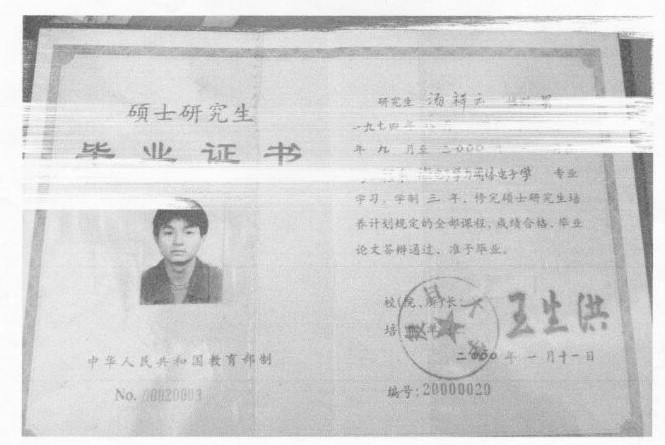 硕士研究生
毕业证书
中华人民共和国教育部制
No. 00020003
研究生 汤祥 性别 男
一九七四年
年九月至二000
微电子学与固体电子学 专业
学习，学制三年，修完硕士研究生培
养计划规定的全部课程，成绩合格，毕业
论文答辩通过，准予毕业。
校(院、所)长：
王生洪
培
二000年一月十一日
编号：20000020